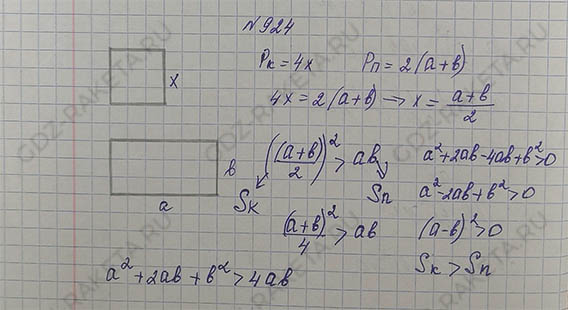 №924
Pк = 4x Pп = 2(a+b)
x
4x = 2(a+b) → x = (a+b)/2
b
a
((a+b)/2)² > ab
Sк Sп
(a+b)²/4 > ab
a²+2ab+b² > 4ab
a²+2ab-4ab+b² > 0
a²-2ab+b² > 0
(a-b)² > 0
Sк > Sп
GDZ-RAKETA.RU